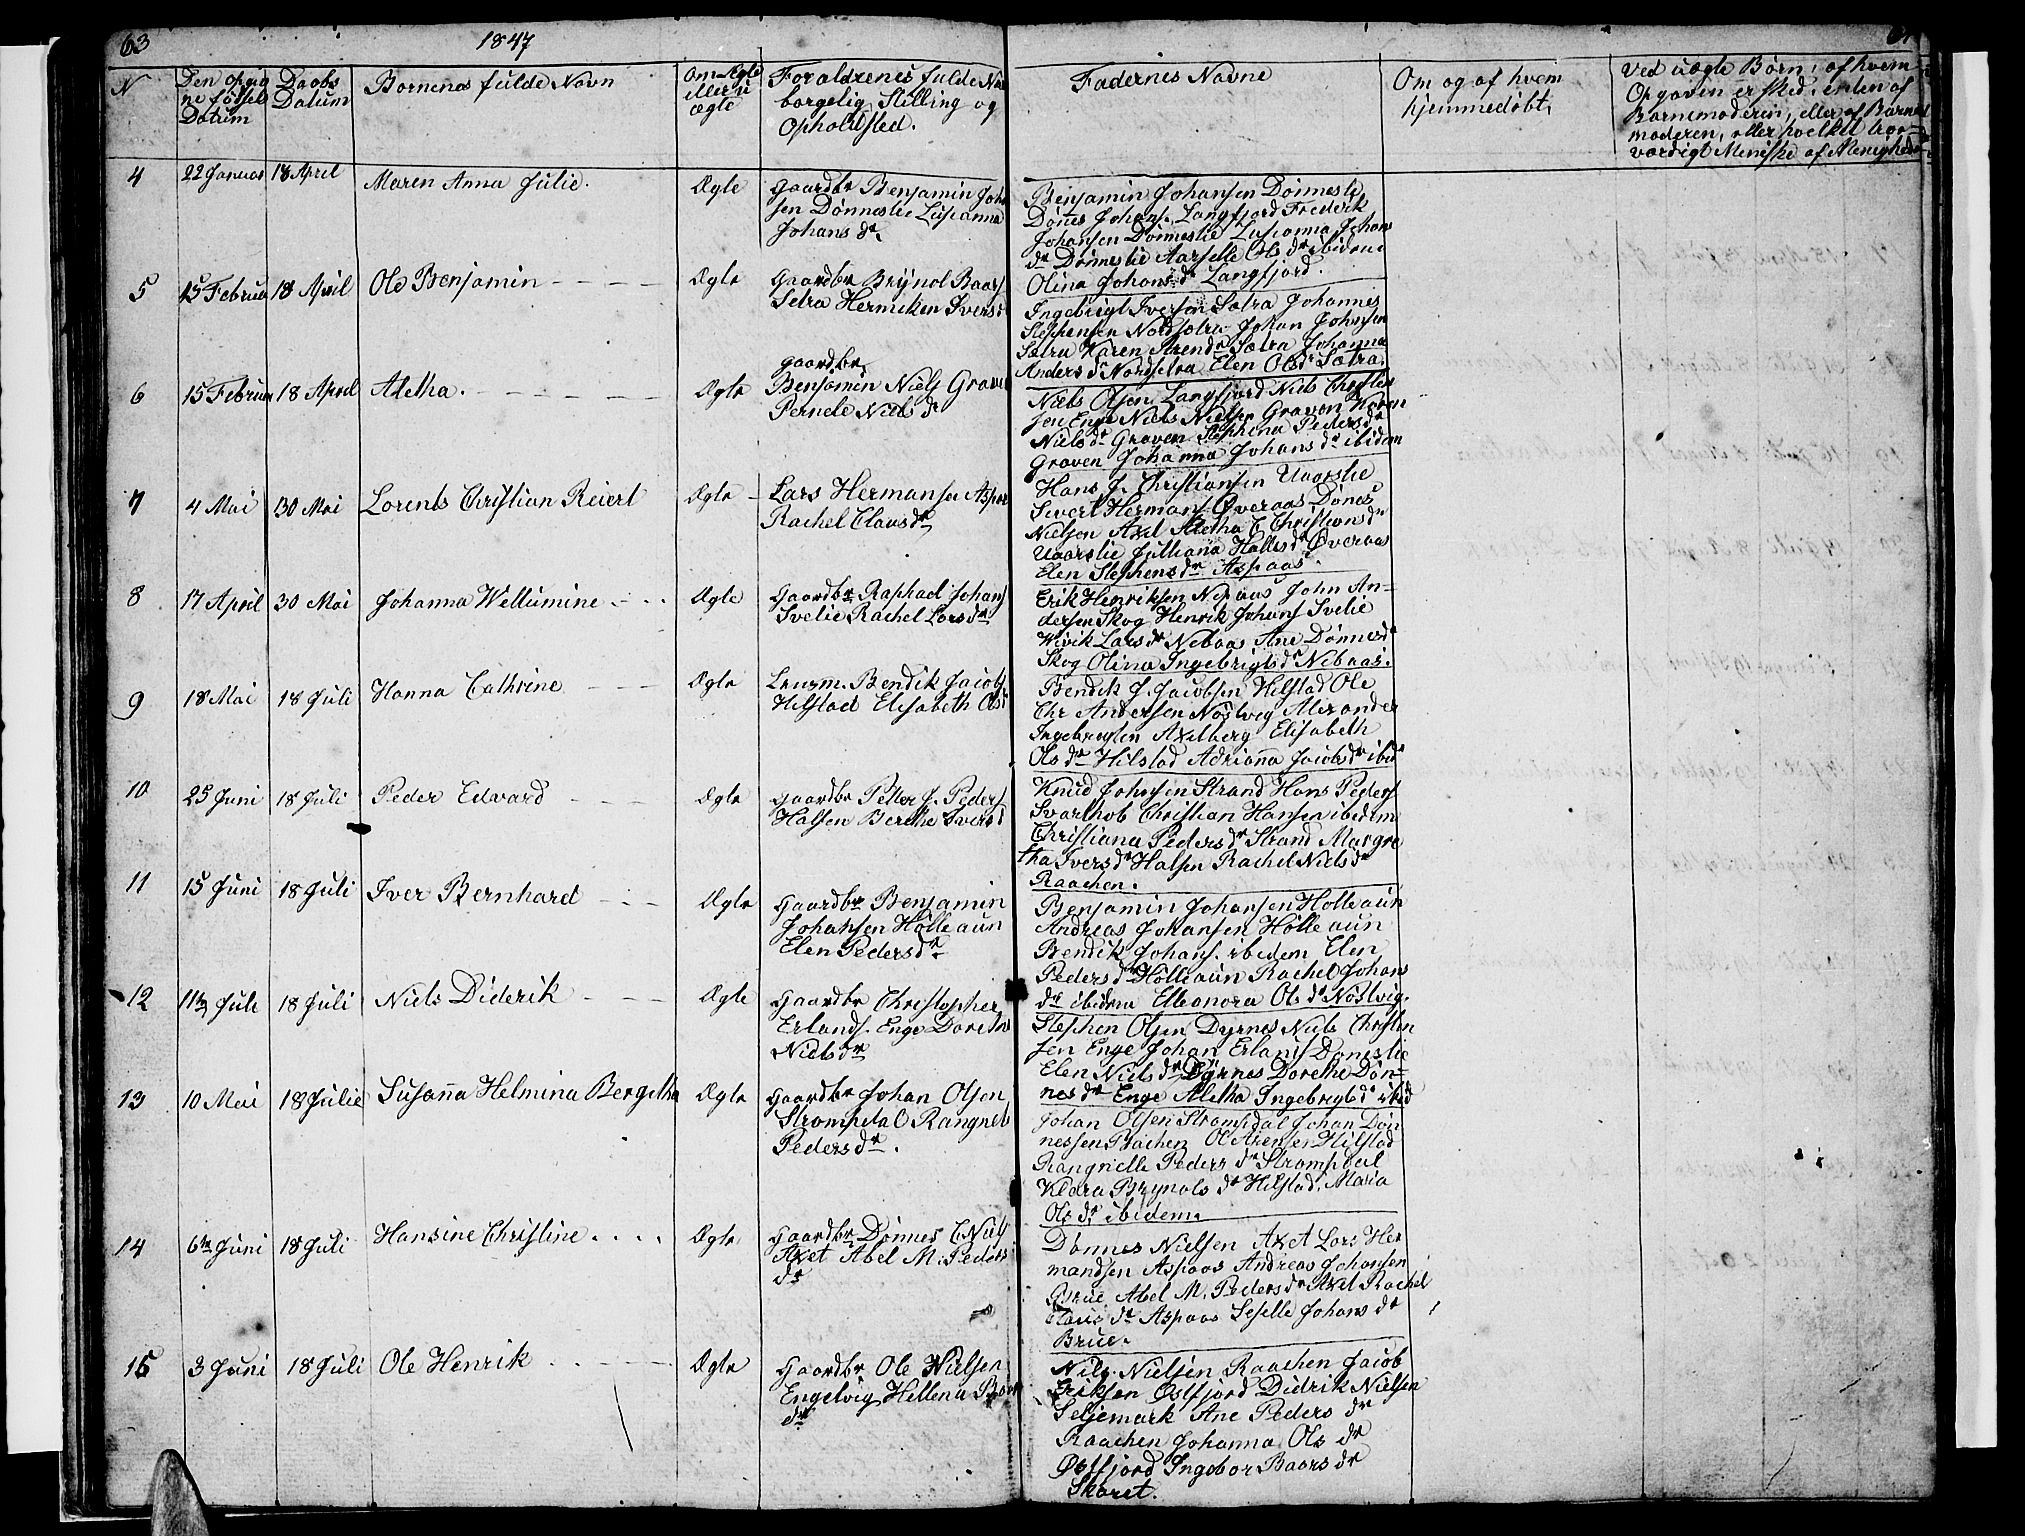 63
1847
N
Den opgiv
ne fødsel
Datum
Daabs
Datum
Bornenes fulde Navn
Om Ægte
eller u
ægte
Forældrenes fulde Nav
borgelig Stilling og
Opholdsted.
Fadernes Navne
Om og af hvem
hjemmedøbt,
Ved uægte Børn; af hvem
Opgaven er sked; enten af
Barnemoderen, eller af Barne
moderen, eller hvelket troe-
værdigt Meniske af Menighede
4 22 Januar 18 April Maren Anna Julie. Ægte
Gaardbr Benjamin Joha
sen Dønneslie Lusianna
Johans dr
Benjamin Johansen Dønneslie
Dønes Johans. Langfjord Frederik
Johansen Dønneslie Lusianna Johans
dr Dønneslie Ols dr ibidem
Olina Johans dr Langfjord.
5 15 Februar 18 April Ole Benjamin Ægte
Gaardbr Brynol Baars
Setra Herniken Ivers d
Ingebrigt Iversen Sætra Johannes
Stephensen Nordsætra Johan Johnsen
Sætra Karen dr Sætra Johanna
Anders dr Nordsetra Elen Ols dr Sætra
6 15 Februar 18 April Aletha. Ægte
Gaardbr
Benjamin Niels Graven
Pernele Niels dr
Niels Olsen Langfjord Niels Christen
sen Enge Niels Nielsen Graven Karen
Niels dr Graven Stephina Peders dr
Graven Johanna Johans dr ibidem
7 4 Mai 30 Mai Lorents Christian Reiert Ægte
Lars Hermansen Aspaas
Rachel Claus dr
Hans J. Christiansen Uaarslie
Sivert Hermans. Øveraas Dønes
Nielsen Axel Aletha C Christians dr
Uaarslie Julliana Halles dr Øveraas
Elen Stephens dr Aspaas.
8 17 April 30 Mai Johanna Wellumine Ægte
Gaardbr Raphael Johans
Svelie Rachel Lars dr
Erik Henriksen Nepaas John An-
dersen Skog Henrik Johans Svelie
Wivik Lars dr Nebaas Ane Dønnes dr
Skog Olina Ingebrigts dr Nebaas.
9 18 Mai 18 Juli Hanna Cathrine Ægte
Bendik Jacobs
Hilstad Elisabeth Ols d
Bendik J. Jacobsen Hilstad Ole
Chr Andersen Nøstvig Alexander
Ingebregtsen Axelberg Elisabeth
Ols dr Hilstad Adrianna Jacobs dr ibid
10 25 Juni 18 Juli Peder Edvard Ægte
Gaardbr Petter J. Peders
Halsen Berethe Ivers d
Knud Johnsen Strand Hans Peders
Svarthob Christian Hansen ibidem
Christiana Peders dr Strand Margre
tha Ivers dr Halsen Rachel Niels dr
Raachen.
11 15 Juni 18 Juli Iver Bernhard Ægte
Gaardbr Benjamin
Johansen Hølleaun
Elen Peders dr
Benjamin Johansen Hølleaun
Andreas Johansen Hølleaun
Bendik Johans. ibidem Elen
Peders dr Hølleaun Rachel Johans
dr ibidem Elleonora Ols dr Nøstvig.
12 Juli 18 Juli Niels Diderik Ægte
Gaardbr Christopher
Erlands. Enge Dorethe
Niels dr
Stephen Olsen Dyrnes Niels Christen
sen Enge Johan Erlands Døneslie
Elen Niels dr Dyrnes Dorethe Døn-
nes dr Enge Aletha Ingebregts dr ibid
13 10 Mai 18 Julie Susanna Helmina Bergitha Ægte
Gaardbr Johan Olsen
Strompdal Rangnele
Peders dr.
Johan Olsen Strompdal Johan Døn
nessen Raachen Ol Hilstad
Rangnelle Peders dr Strompdal
Brynols dr Hilstad. Maria
Ols dr ibidem.
14 6te Juni 18 Juli Hansine Christine Ægte
Gaardbr Dønnes C. Niels
Axet Abel M. Peders
dr
Dønnes Nielsen Axet Lars Her
mandsen Aspaas Andreas Johansen
Brue Abel M. Peders dr Axel Rachel
Claus dr Aspaas Leselle Johans dr
Brue.
15 3 Juni 18 Juli Ole Henrik Ægte
Gaardbr Ole Nielsen
Engelvig Hellena
dr
Nils. Nielsen Raachen Jacob
Eriksen Østfjord Didrik Nielsen
Seljemark Ane Peders dr
Raachen Johanna Ols dr
Østfjord Ingebor Baars dr
Skaret.